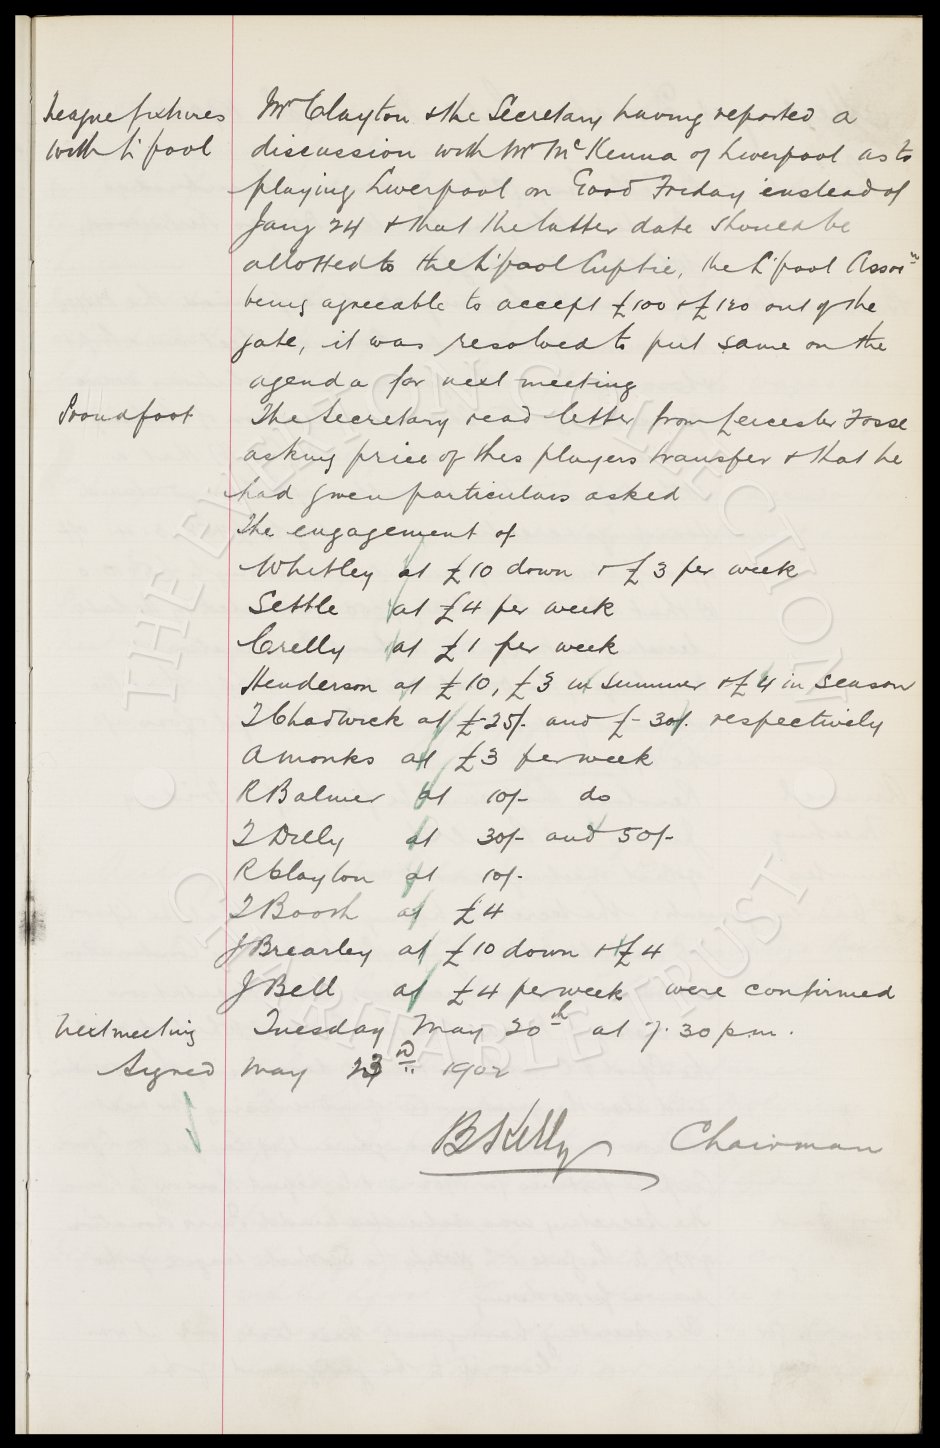 League fixtures
with L'pool
Mr Clayton & the Secretary having reported a
discussion with Mr McKenna of Liverpool as to
playing Liverpool on Good Friday instead of
Jany 24 & that the latter date should be
allotted to the L'pool Cup tie, the L'pool Assocn
being agreeable to accept £100 & £120 out of the
gate, it was resolved to put same on the
agenda for next meeting
Proudfoot
The Secretary read letter from Leicester Fosse
asking price of this players transfer & that he
had given particulars asked
The engagement of
Whitley at £10 down & £3 per week
Settle at £4 per week
Crelly at £1 per week
Henderson at £10, £3 in summer & £4 in season
T Chadwick at £-25/- and £-30/- respectively
A Monks at £3 per week
R Balmer at 10/- do
T Dilly at 30/- and 50/-
R Clayton at 10/-
T Booth at £4
J Brearley at £10 down & £4
J Bell at £4 per week were confirmed
Next meeting
Tuesday May 20th at 7.30 p.m.
Signed
May 23rd 1902
B Kelly Chairman
THE EVERTON COLLECTION
CHARITABLE TRUST